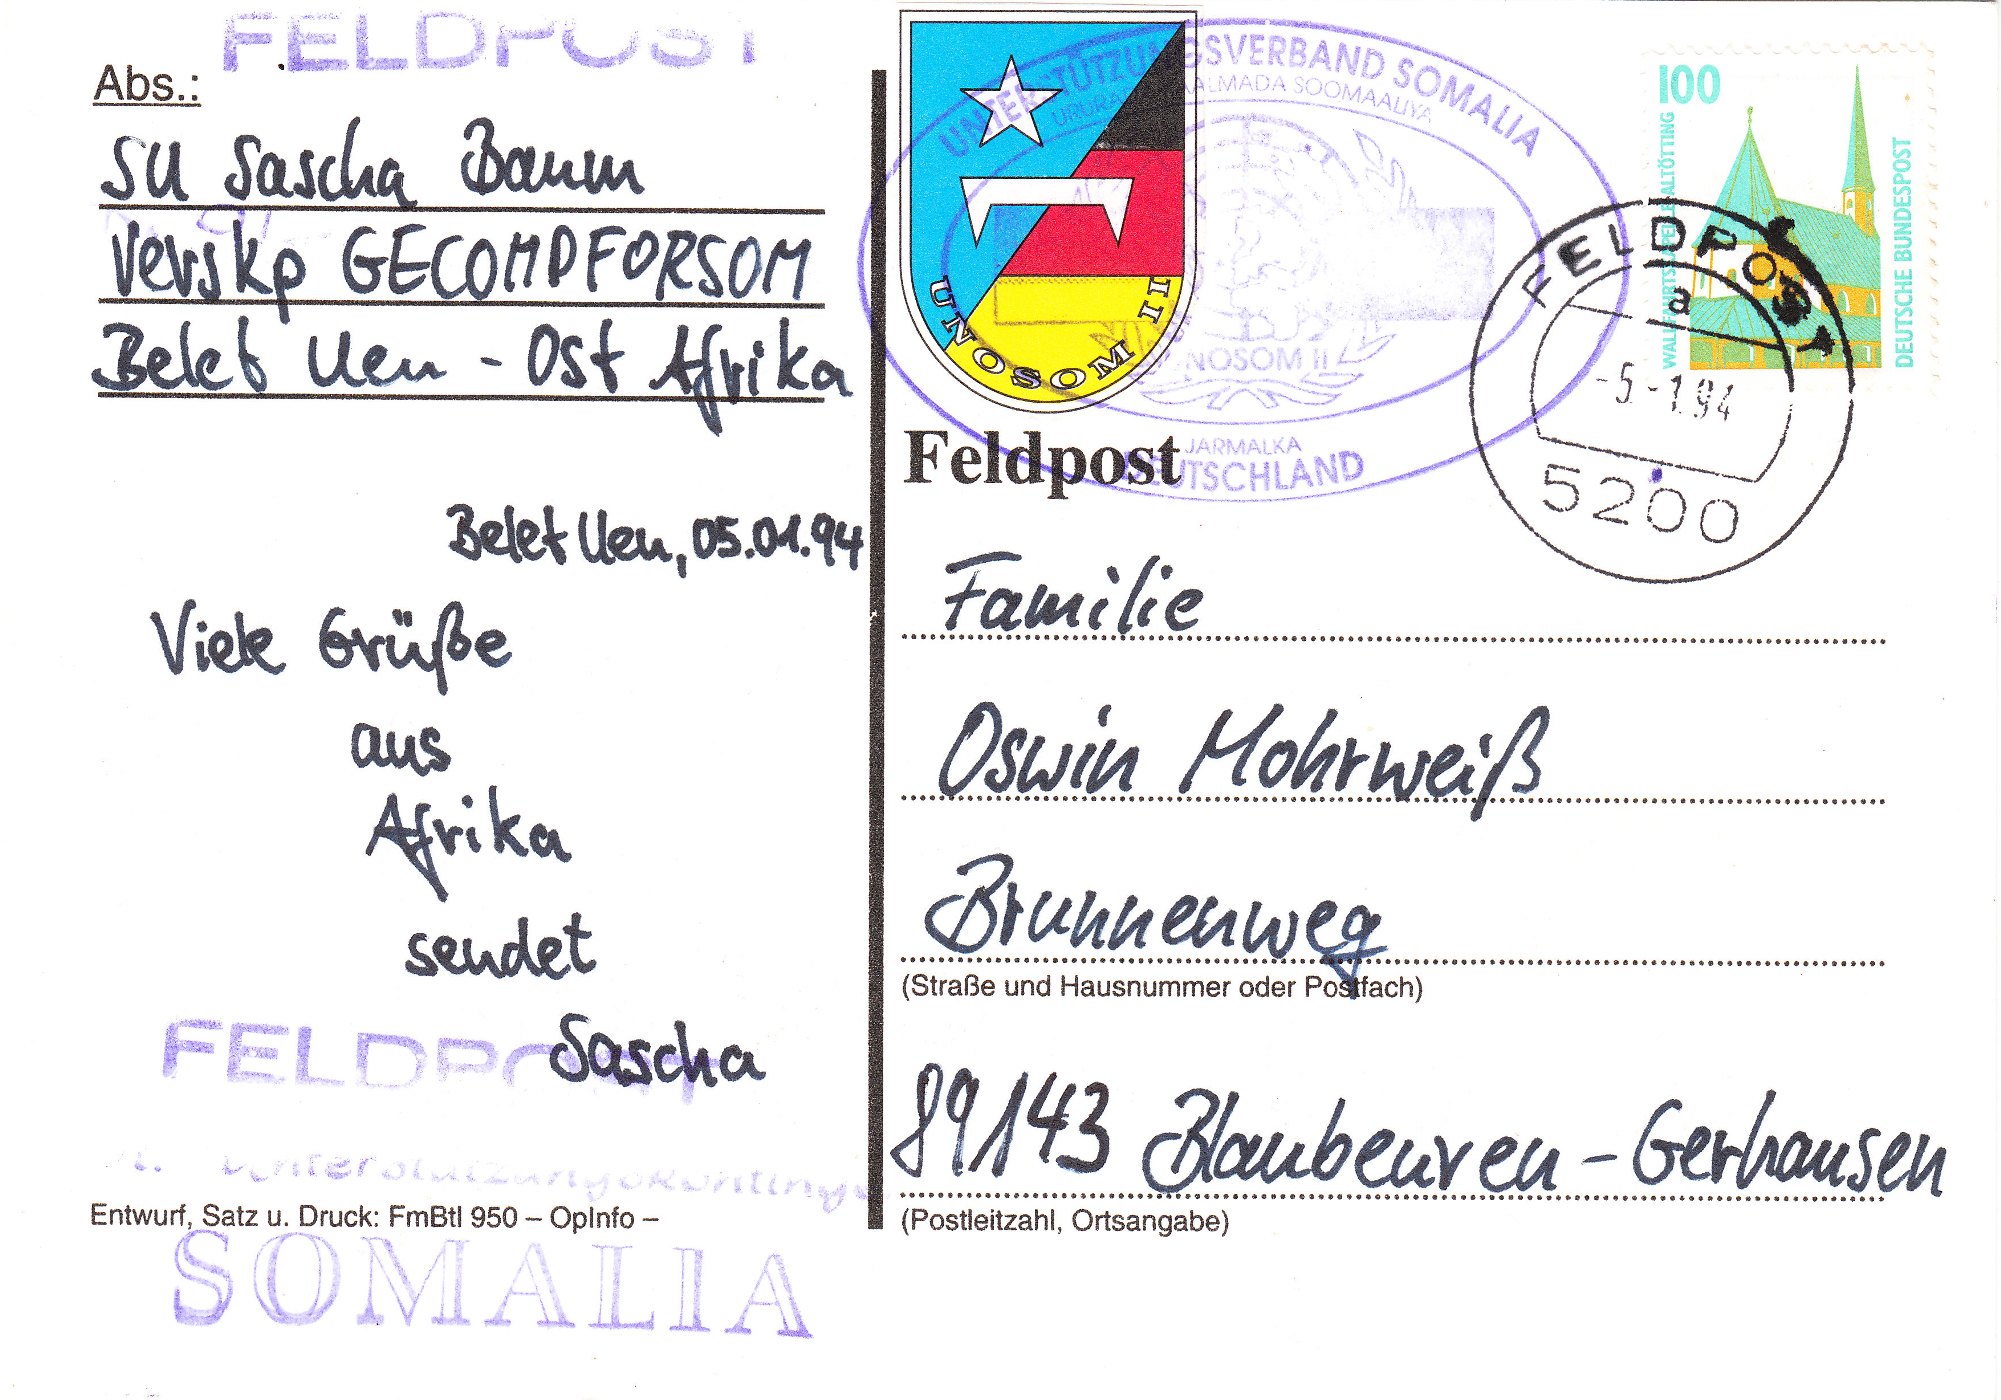 FELDPOST
Abs.:
SU Sascha Baum
Verskp GECOMPFORSOM
Belet Uen - Ost Afrika
Belet Uen, 05.01.94
Viele Grüße
aus
Afrika
sendet
Sascha
FELDPOST
Unterstützungskontingent
Entwurf, Satz u. Druck: FmBtl 950 – OpInfo –
SOMALIA
UNOSOM II
UNTERSTÜTZUNGSVERBAND SOMALIA
SOOMAALIYA
UNOSOM II
JARMALKA
DEUTSCHLAND
100
WALLFAHRTSKAPELLE ALTÖTTING
DEUTSCHE BUNDESPOST
FELDPOST
a
-5.-1.94
5200
Feldpost
Familie
Oswin Mohrweiß
Brunnenweg
(Straße und Hausnummer oder Postfach)
89143 Blaubeuren - Gerhausen
(Postleitzahl, Ortsangabe)